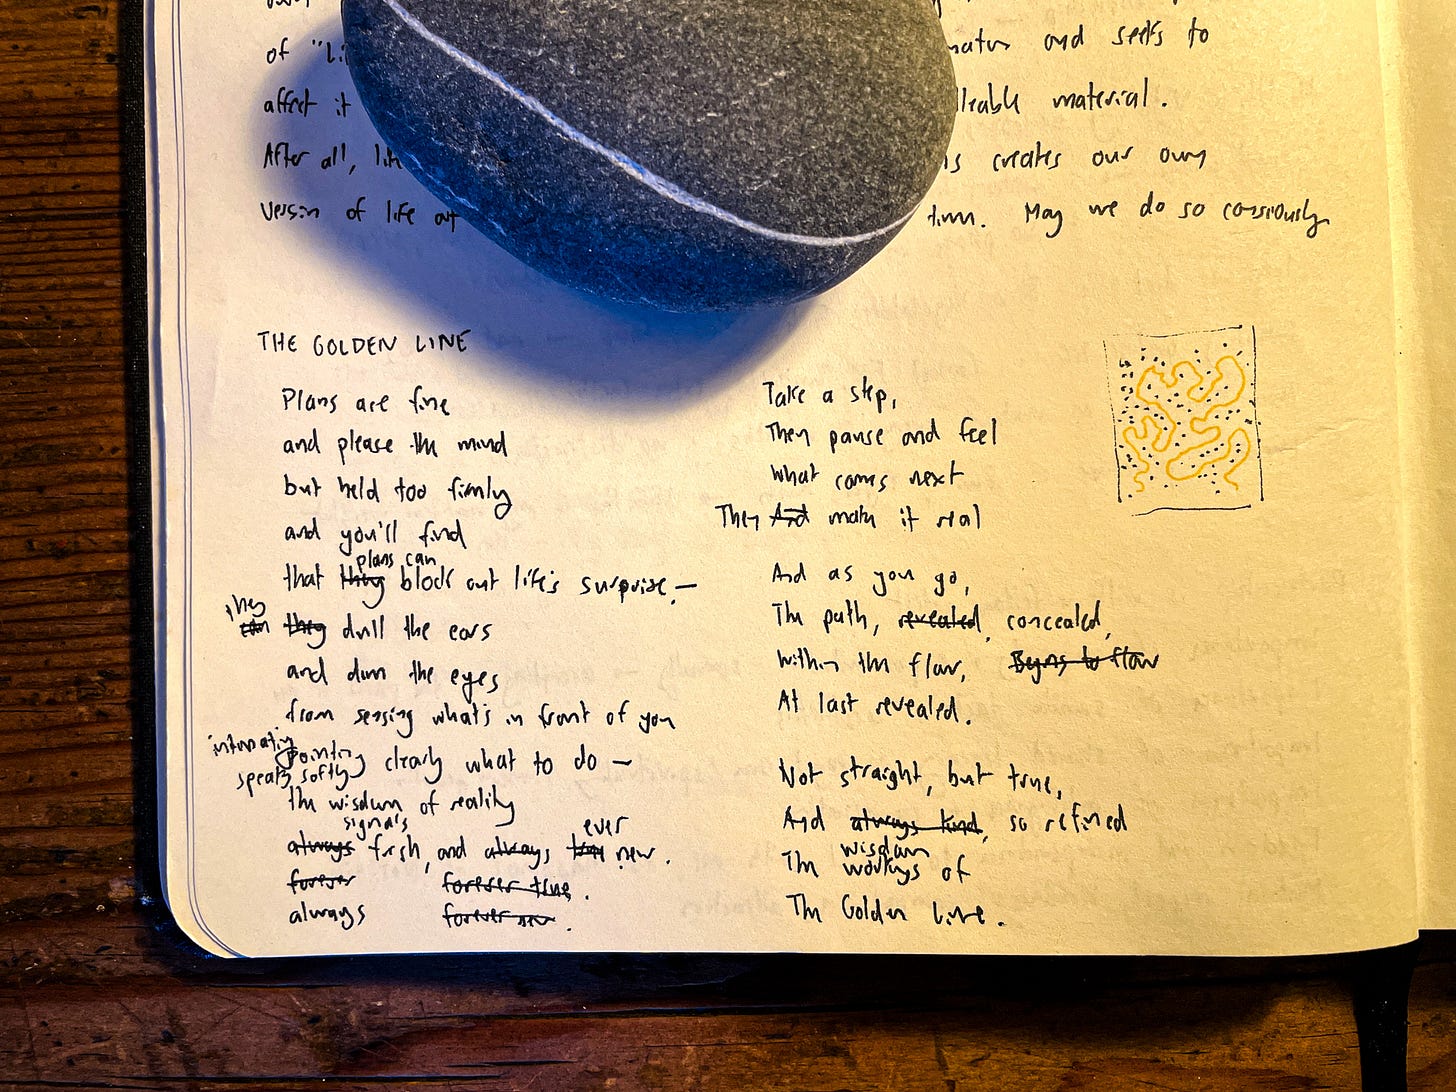 of "Li
natur and seeks to
affect it
leable material.
After all, life
is creates our own
version of life out
time. May we do so consciously
THE GOLDEN LINE
Plans are fine
and please the mind
but held too firmly
and you'll find
plans can
that they block out life's surprise —
they
can they dull the ears
and dim the eyes
from sensing what's in front of you
intimating
pointing clearly what to do —
speaks softly
the wisdom of reality
signals
always fresh, and always ever new.
forever forever true.
always forever new.
Take a step,
Then pause and feel
What comes next
Then And make it real
And as you go,
The path, revealed, concealed,
Within the flow, Begins to flow
At last revealed.
Not straight, but true,
And always kind, so refined
wisdom
The workings of
The Golden Line.